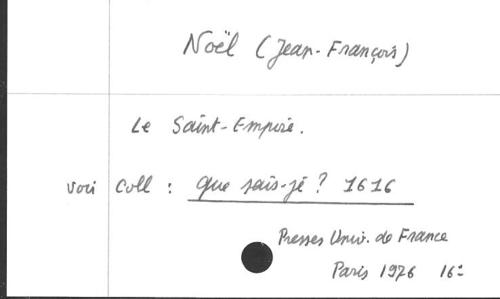 Noël (Jean-François)
Le Saint-Empire.
voir Coll : Que sais-je ? 1616
Presses Univ. de France
Paris 1976 16º